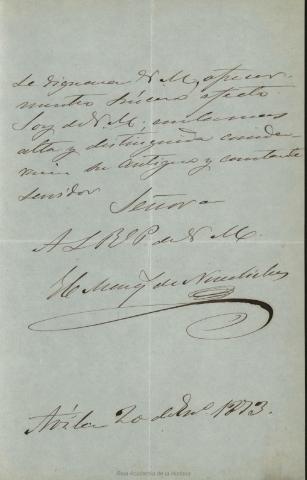 se dignara V. M. ofrecer
nuestro sincero afecto.
Soy de V. M. con la mas
alta y distinguida conside-
racion su antiguo y constante
servidor
Señora
A L R P de V. M.
El Marq de
Avila 20 de En.º 1873.
Real Academia de la Historia